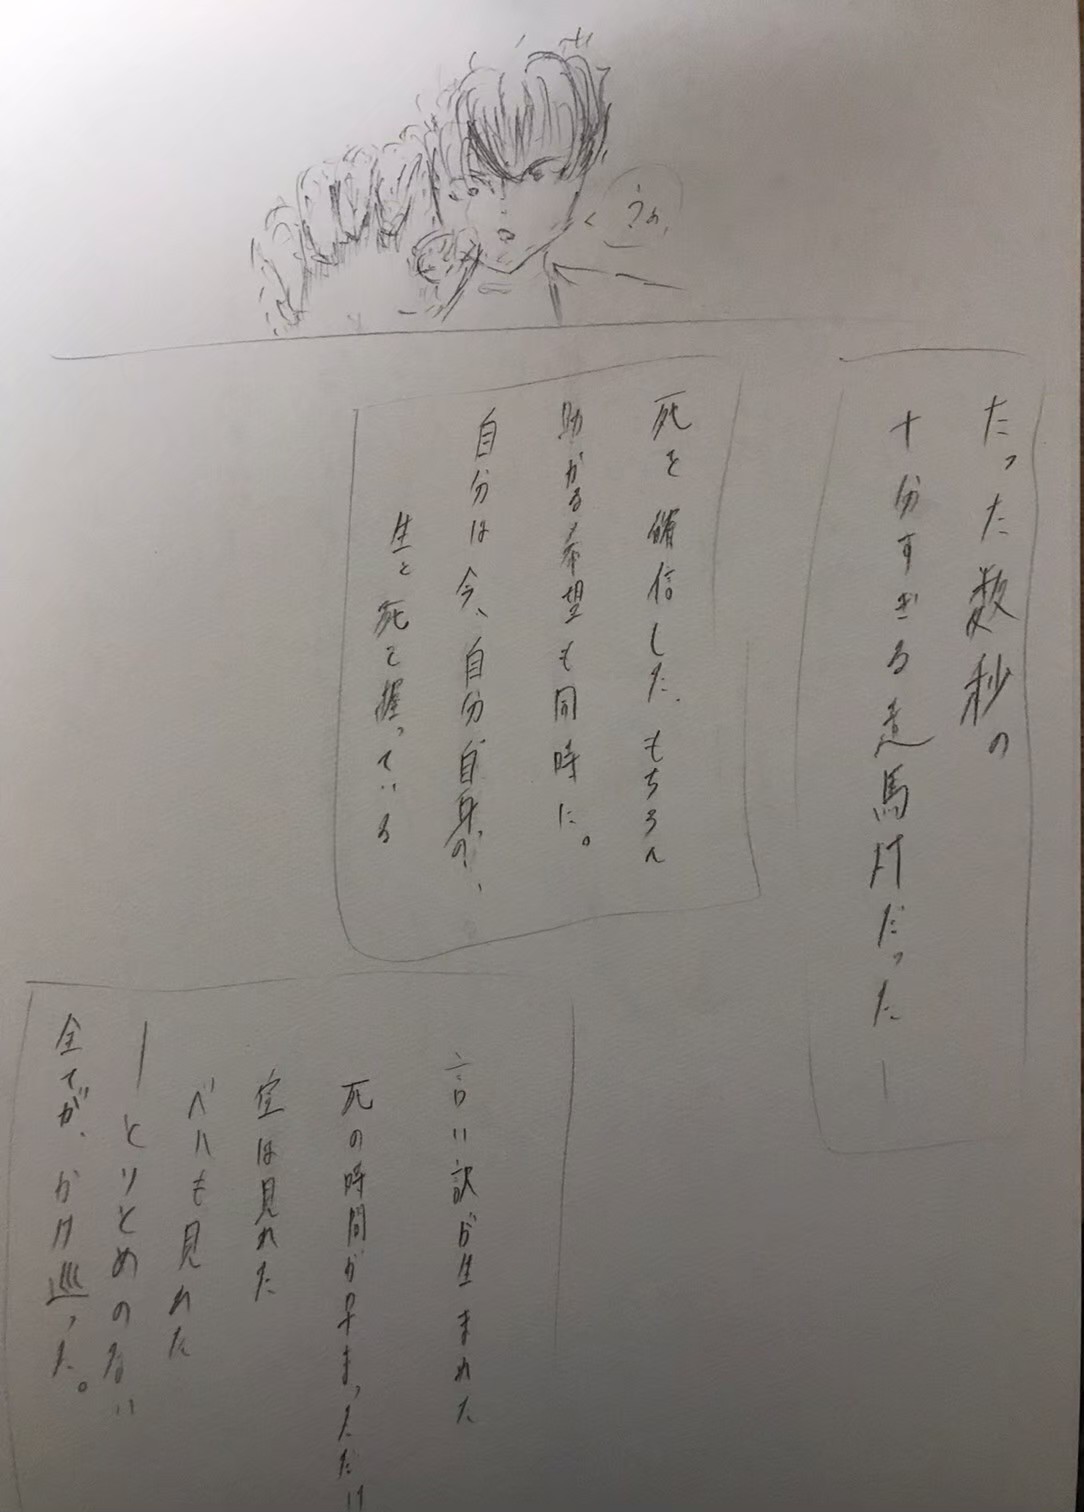 うわ
たった数秒の
十分すぎる走馬灯だった—
死を確信した、もちろん
助かる希望も同時に。
自分は今、自分自身の、
生と死を握っている
言い訳が生まれた
死の時間が早まっただけ
空は見れた
ベルも見れた
—とりとめのない
全てが、かけ巡った。